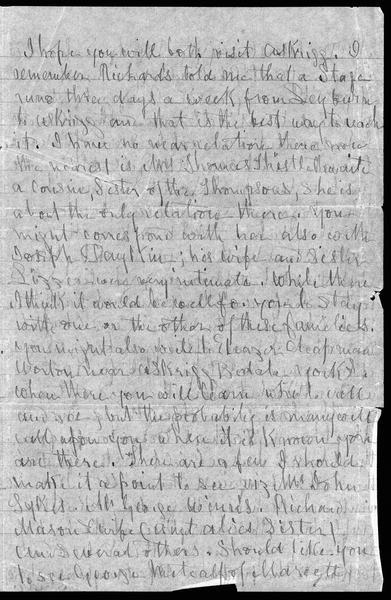 I hope you will both visit Askrigg. I
remember Richards told me that a Stage
runs three days a week from Leyburn
to Askrigg and that is the best way to reach
it. I have no near relation there now
the nearest is Mrs Thomas Thistlethwaite
a cousin, Sister of the Thompsons, she is
about the only relation there. You
might correspond with her also with
Joseph; his wife and Sister
Lizzie were very intimate. While there
I think it would be well for you to stay
with one or the other of these families.
You might also write to Eleazer Chapman
Worton near Askrigg Bedale Yorks.
when there you will learn who to call
and see, but the probability is many will
call upon you when it is known you
are there. There are a few I should
make it a point to see viz Mr John
Sykes. Mr George Winn's. Richard
Mason & wife (Sister)
and several others. Should like you
to see George Metcalf of